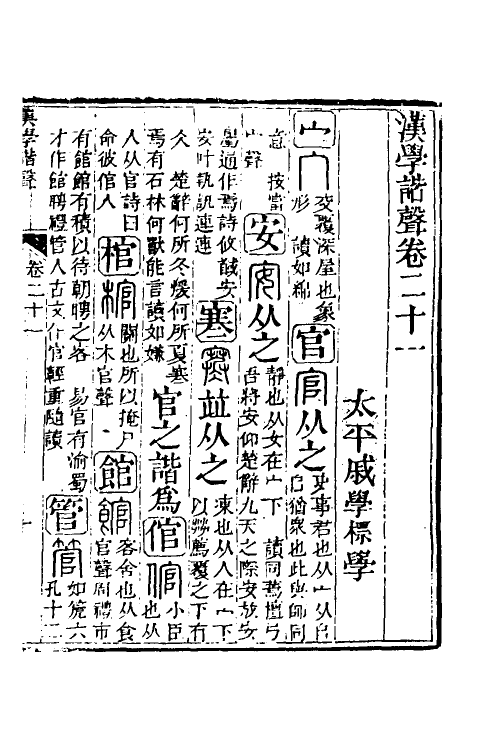 漢學諧聲卷二十一
太平戚學標學
宀 交覆深屋也象形 讀如緜 官 从之 吏事君也从宀从𠂤𠂤猶眾也此與師同
意 按當宀聲 安 从之 靜也从女在宀下 讀同焉檀弓吾將安仰楚辭九天之際安放安
屬通作焉詩攸馘安安叶執訊連連 寒 並从之 凍也从人在宀下以茻薦覆之下有
仌 楚辭何所冬煖何所夏寒焉有石林何獸能言讀如嫌 官之諧爲倌 小臣也从
人从官詩曰命彼倌人 棺 關也所以掩尸从木官聲 館 客舍也从食官聲周禮市
有館館有積以待朝聘之客 易官有渝蜀才作館聘禮管人古文作官輕重隨讀 管 如箎六孔十二
漢學諧聲 卷二十一